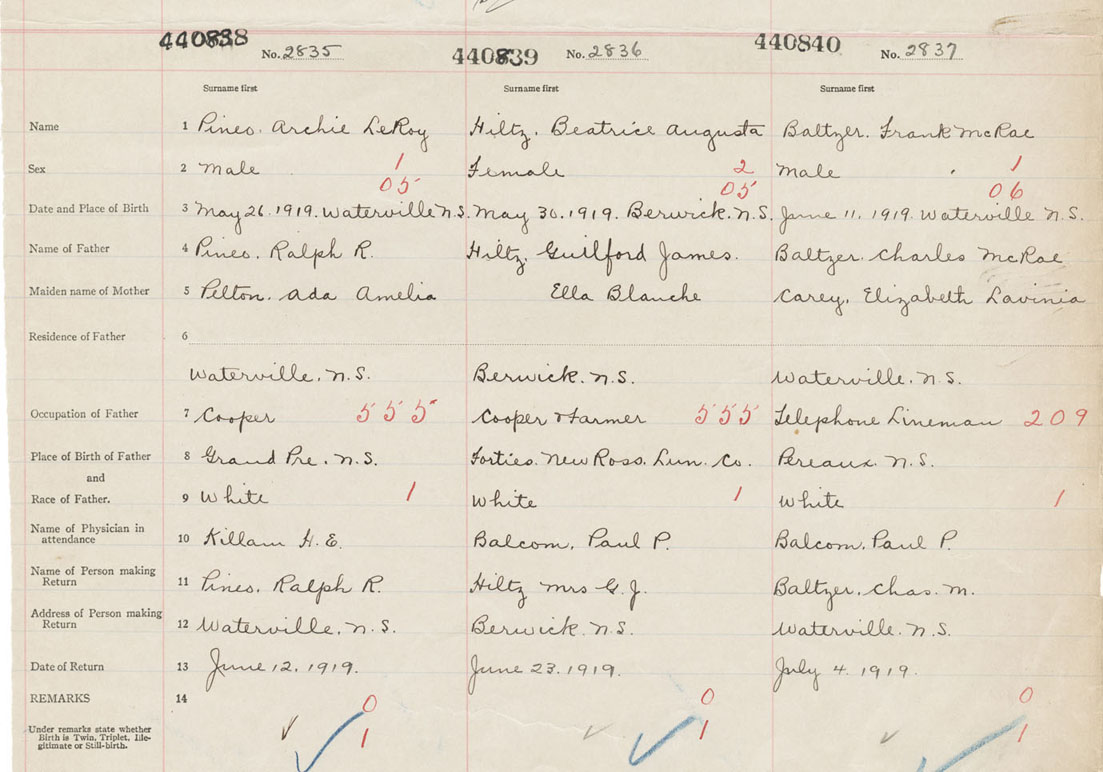 440838 No. 2835 440839 No. 2836 440840 No. 2837
Surname first Surname first Surname first
Name 1 Pineo. Archie LeRoy Hiltz. Beatrice Augusta Baltzer. Frank McRae
Sex 2 Male 1 Female 2 Male 1
05 05 06
Date and Place of Birth 3 May 26. 1919. Waterville N.S. May 30. 1919. Berwick. N.S. June 11, 1919. Waterville N.S.
Name of Father 4 Pineo. Ralph R. Hiltz, Guilford James. Baltzer. Charles McRae
Maiden name of Mother 5 Pelton. Ada Amelia Ella Blanche Carey, Elizabeth Lavinia
Residence of Father 6
Waterville. N.S. Berwick. N.S. Waterville. N.S.
Occupation of Father 7 Cooper 555 Cooper & Farmer 555 Telephone Lineman 209
Place of Birth of Father 8 Grand Pre. N.S. Forties. New Ross. Lun. Co. Pereaux. N.S.
and
Race of Father. 9 White 1 White 1 White 1
Name of Physician in
attendance 10 Killam H.E. Balcom. Paul P. Balcom, Paul P.
Name of Person making
Return 11 Pineo, Ralph R. Hiltz Mrs G.J. Baltzer. Chas. M.
Address of Person making
Return 12 Waterville. N.S. Berwick. N.S. Waterville. N.S.
Date of Return 13 June 12. 1919. June 23. 1919. July 4. 1919.
REMARKS 14 0 0 0
Under remarks state whether
Birth is Twin, Triplet, Ille-
gitimate or Still-birth. 1 1 1